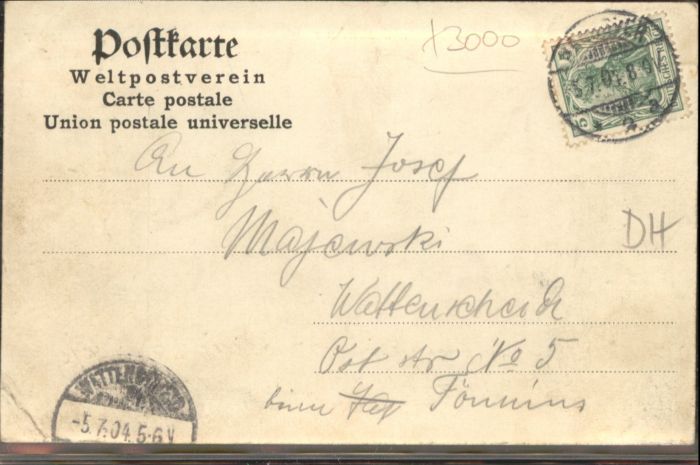 Postkarte
Weltpostverein
Carte postale
Union postale universelle
x3000
5.7.04.8-9
* 2 a
5
An Herrn Josef
Majewski
DH
Wattenscheid
Ost str No 5
WATTENSCHEID
-5.7.04.5-6V